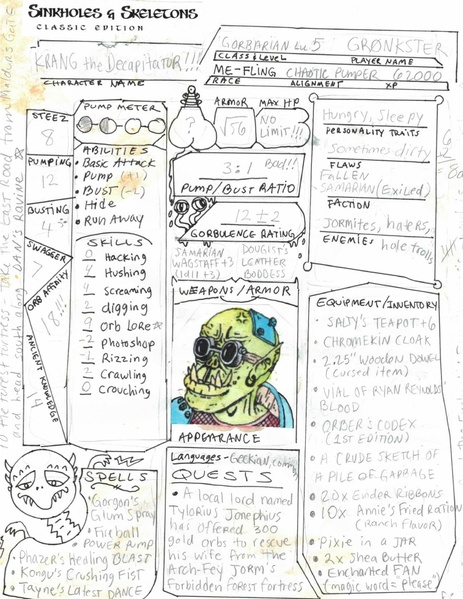 SINKHOLES & SKELETONS
CLASSIC EDITION
KRANG the Decapitator!!!
CHARACTER NAME
GORBARIAN LV. 5 GRØNKSTER
CLASS & LEVEL PLAYER NAME
ME-FLING CHAOTIC PUMPER 62000
RACE ALIGNMENT XP
STEEZ
8
PUMPING
12
BUSTING
4
SWAGGER
7
ORB AFFINITY
18!!!
ANCIENT KNOWLEDGE
14
PUMP METER
ABILITIES
• Basic Attack
• Pump (+1)
• BUST (-L)
• Hide
• Run Away
SKILLS
0 Hacking
Hushing
4 Screaming
2 digging
9 Orb Lore
-2 Photoshop
-1 Rizzing
2 Crawling
0 Crouching
?
ARMOR
√56
MAX HP
NO LIMIT!!!
3:1 Bad!!
PUMP/BUST RATIO
12 ± 2
GORBULENCE RATING
SAMARIAN WAGSTAFF+3
DOUGIST LEATHER GODDESS
WEAPONS/ARMOR
APPEARANCE
Hungry, Sleepy
PERSONALITY TRAITS
Sometimes dirty
FLAWS
FALLEN SAMARIAN (Exiled)
FACTION
Jormites, haters,
ENEMIES hole trolls
EQUIPMENT/INVENTORY
• SALTY'S TEAPOT+6
• CHROMEKIN CLOAK
• 2.25" Wooden Dowel
(cursed item)
• VIAL OF RYAN REYNOLDS
BLOOD
• ORBER'S CODEX
(1ST EDITION)
• A CRUDE SKETCH OF
A PILE OF GARBAGE
• 20x Endor Ribbons
• 10x Annie's Fried Ration
(Ranch flavor)
• Pixie in a JAR
• 2x Shea Butter
• Enchanted FAN
(magic word = "please")
SPELLS
• Gorgon's
Glum Spray
• Fireball
• POWER PUMP
• Phazer's Healing BLAST
• Kongu's Crushing Fist
• Tayne's Latest DANCE
Languages - Geekian,
QUESTS
• A local lord named
Tylorius Jonephius
has offered 300
gold orbs to rescue
his wife from the
Arch-Fey JORM's
Forbidden FOREST fortress
To the forrest fortress take the East Road from Maldur's Gate
and head south along DAN'S Ravine